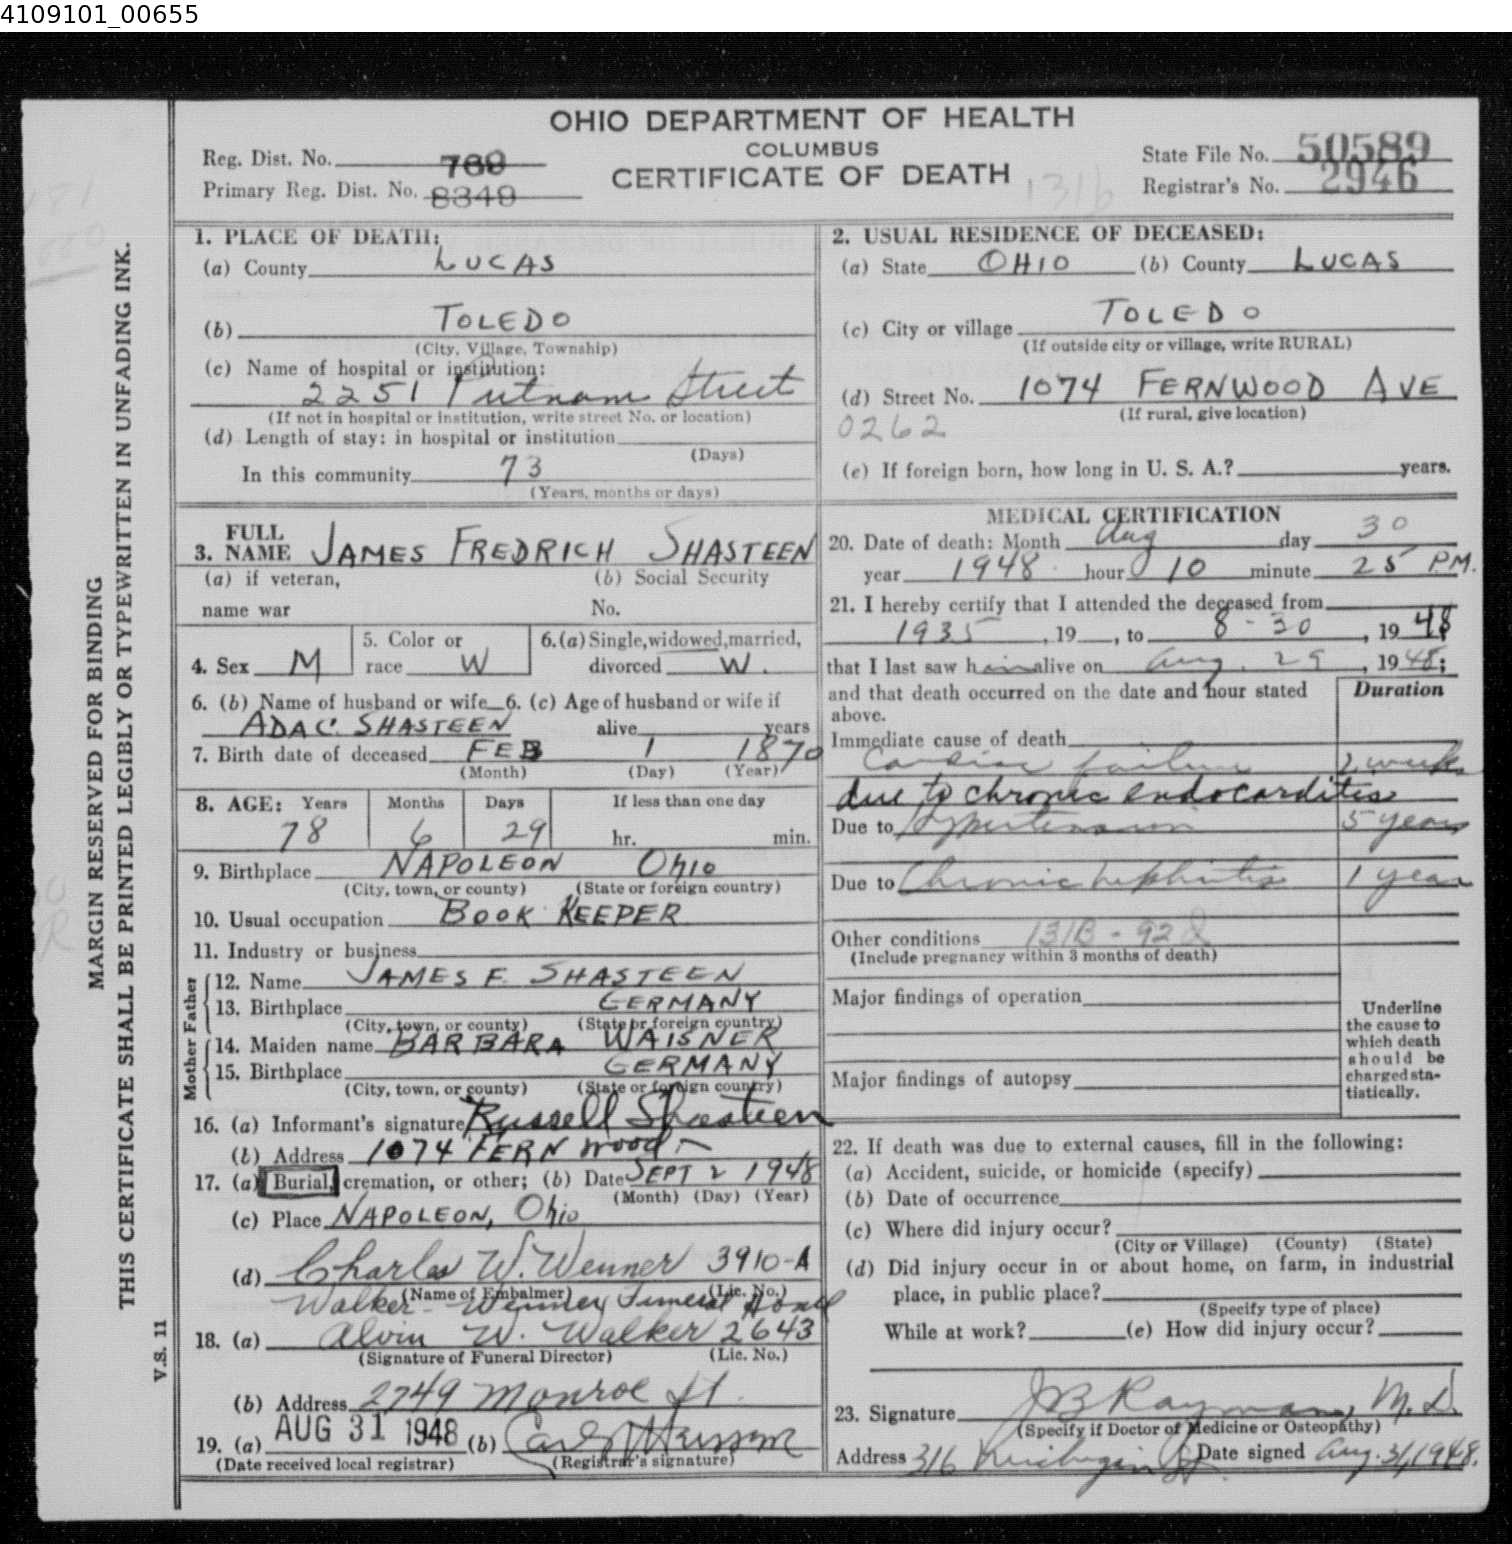 4109101_00655
OHIO DEPARTMENT OF HEALTH
COLUMBUS
CERTIFICATE OF DEATH
Reg. Dist. No.
Primary Reg. Dist. No. 8349
State File No. 50589
Registrar's No. 2946
131b
MARGIN RESERVED FOR BINDING
THIS CERTIFICATE SHALL BE PRINTED LEGIBLY OR TYPEWRITTEN IN UNFADING INK.
V.S. 11
1. PLACE OF DEATH:
(a) County LUCAS
(b) TOLEDO
(City, Village, Township)
(c) Name of hospital or institution:
2251 Putnam Street
(If not in hospital or institution, write street No. or location)
(d) Length of stay: in hospital or institution
(Days)
In this community 73
(Years, months or days)
2. USUAL RESIDENCE OF DECEASED:
(a) State OHIO (b) County LUCAS
(c) City or village TOLEDO
(If outside city or village, write RURAL)
(d) Street No. 1074 FERNWOOD AVE
(If rural, give location)
0262
(e) If foreign born, how long in U. S. A.? years.
3. FULL NAME JAMES FREDRICH SHASTEEN
(a) if veteran, name war
(b) Social Security No.
4. Sex M
5. Color or race W
6.(a) Single, widowed, married, divorced W.
6. (b) Name of husband or wife
ADA C. SHASTEEN
6. (c) Age of husband or wife if alive years
7. Birth date of deceased FEB 1 1870
(Month) (Day) (Year)
8. AGE: Years Months Days If less than one day
78 6 29 hr. min.
9. Birthplace NAPOLEON Ohio
(City, town, or county) (State or foreign country)
10. Usual occupation BOOK KEEPER
11. Industry or business
Father
12. Name JAMES F. SHASTEEN
13. Birthplace GERMANY
(City, town, or county) (State or foreign country)
Mother
14. Maiden name BARBARA WAISNER
15. Birthplace GERMANY
(City, town, or county) (State or foreign country)
16. (a) Informant's signature Russell Shasteen
(b) Address 1074 FERNwood
17. (a) Burial, cremation, or other; (b) Date SEPT 2 1948
(Month) (Day) (Year)
(c) Place NAPOLEON, Ohio
(d) Charles W. Wenner 3910-A
(Name of Embalmer) (Lic. No.)
Walker - Wenner Funeral Home
18. (a) Alvin W. Walker 2643
(Signature of Funeral Director) (Lic. No.)
(b) Address 2749 Monroe St.
19. (a) AUG 31 1948 (b)
(Date received local registrar) (Registrar's signature)
MEDICAL CERTIFICATION
20. Date of death: Month Aug day 30
year 1948 hour 10 minute 25 P.M.
21. I hereby certify that I attended the deceased from
1935, 19 , to 8-30, 1948
that I last saw him alive on Aug. 29, 1948;
and that death occurred on the date and hour stated above.
Duration
Immediate cause of death
Cardiac failure 2 weeks
due to chronic endocarditis
Due to Hypertension 5 years
Due to Chronic nephritis 1 year
Other conditions 131B - 92
(Include pregnancy within 3 months of death)
Major findings of operation
Major findings of autopsy
Underline the cause to which death should be charged statistically.
22. If death was due to external causes, fill in the following:
(a) Accident, suicide, or homicide (specify)
(b) Date of occurrence
(c) Where did injury occur?
(City or Village) (County) (State)
(d) Did injury occur in or about home, on farm, in industrial
place, in public place?
(Specify type of place)
While at work? (e) How did injury occur?
23. Signature J B Rayman, M.D.
(Specify if Doctor of Medicine or Osteopathy)
Address 316 Michigan St. Date signed Aug. 31, 1948.